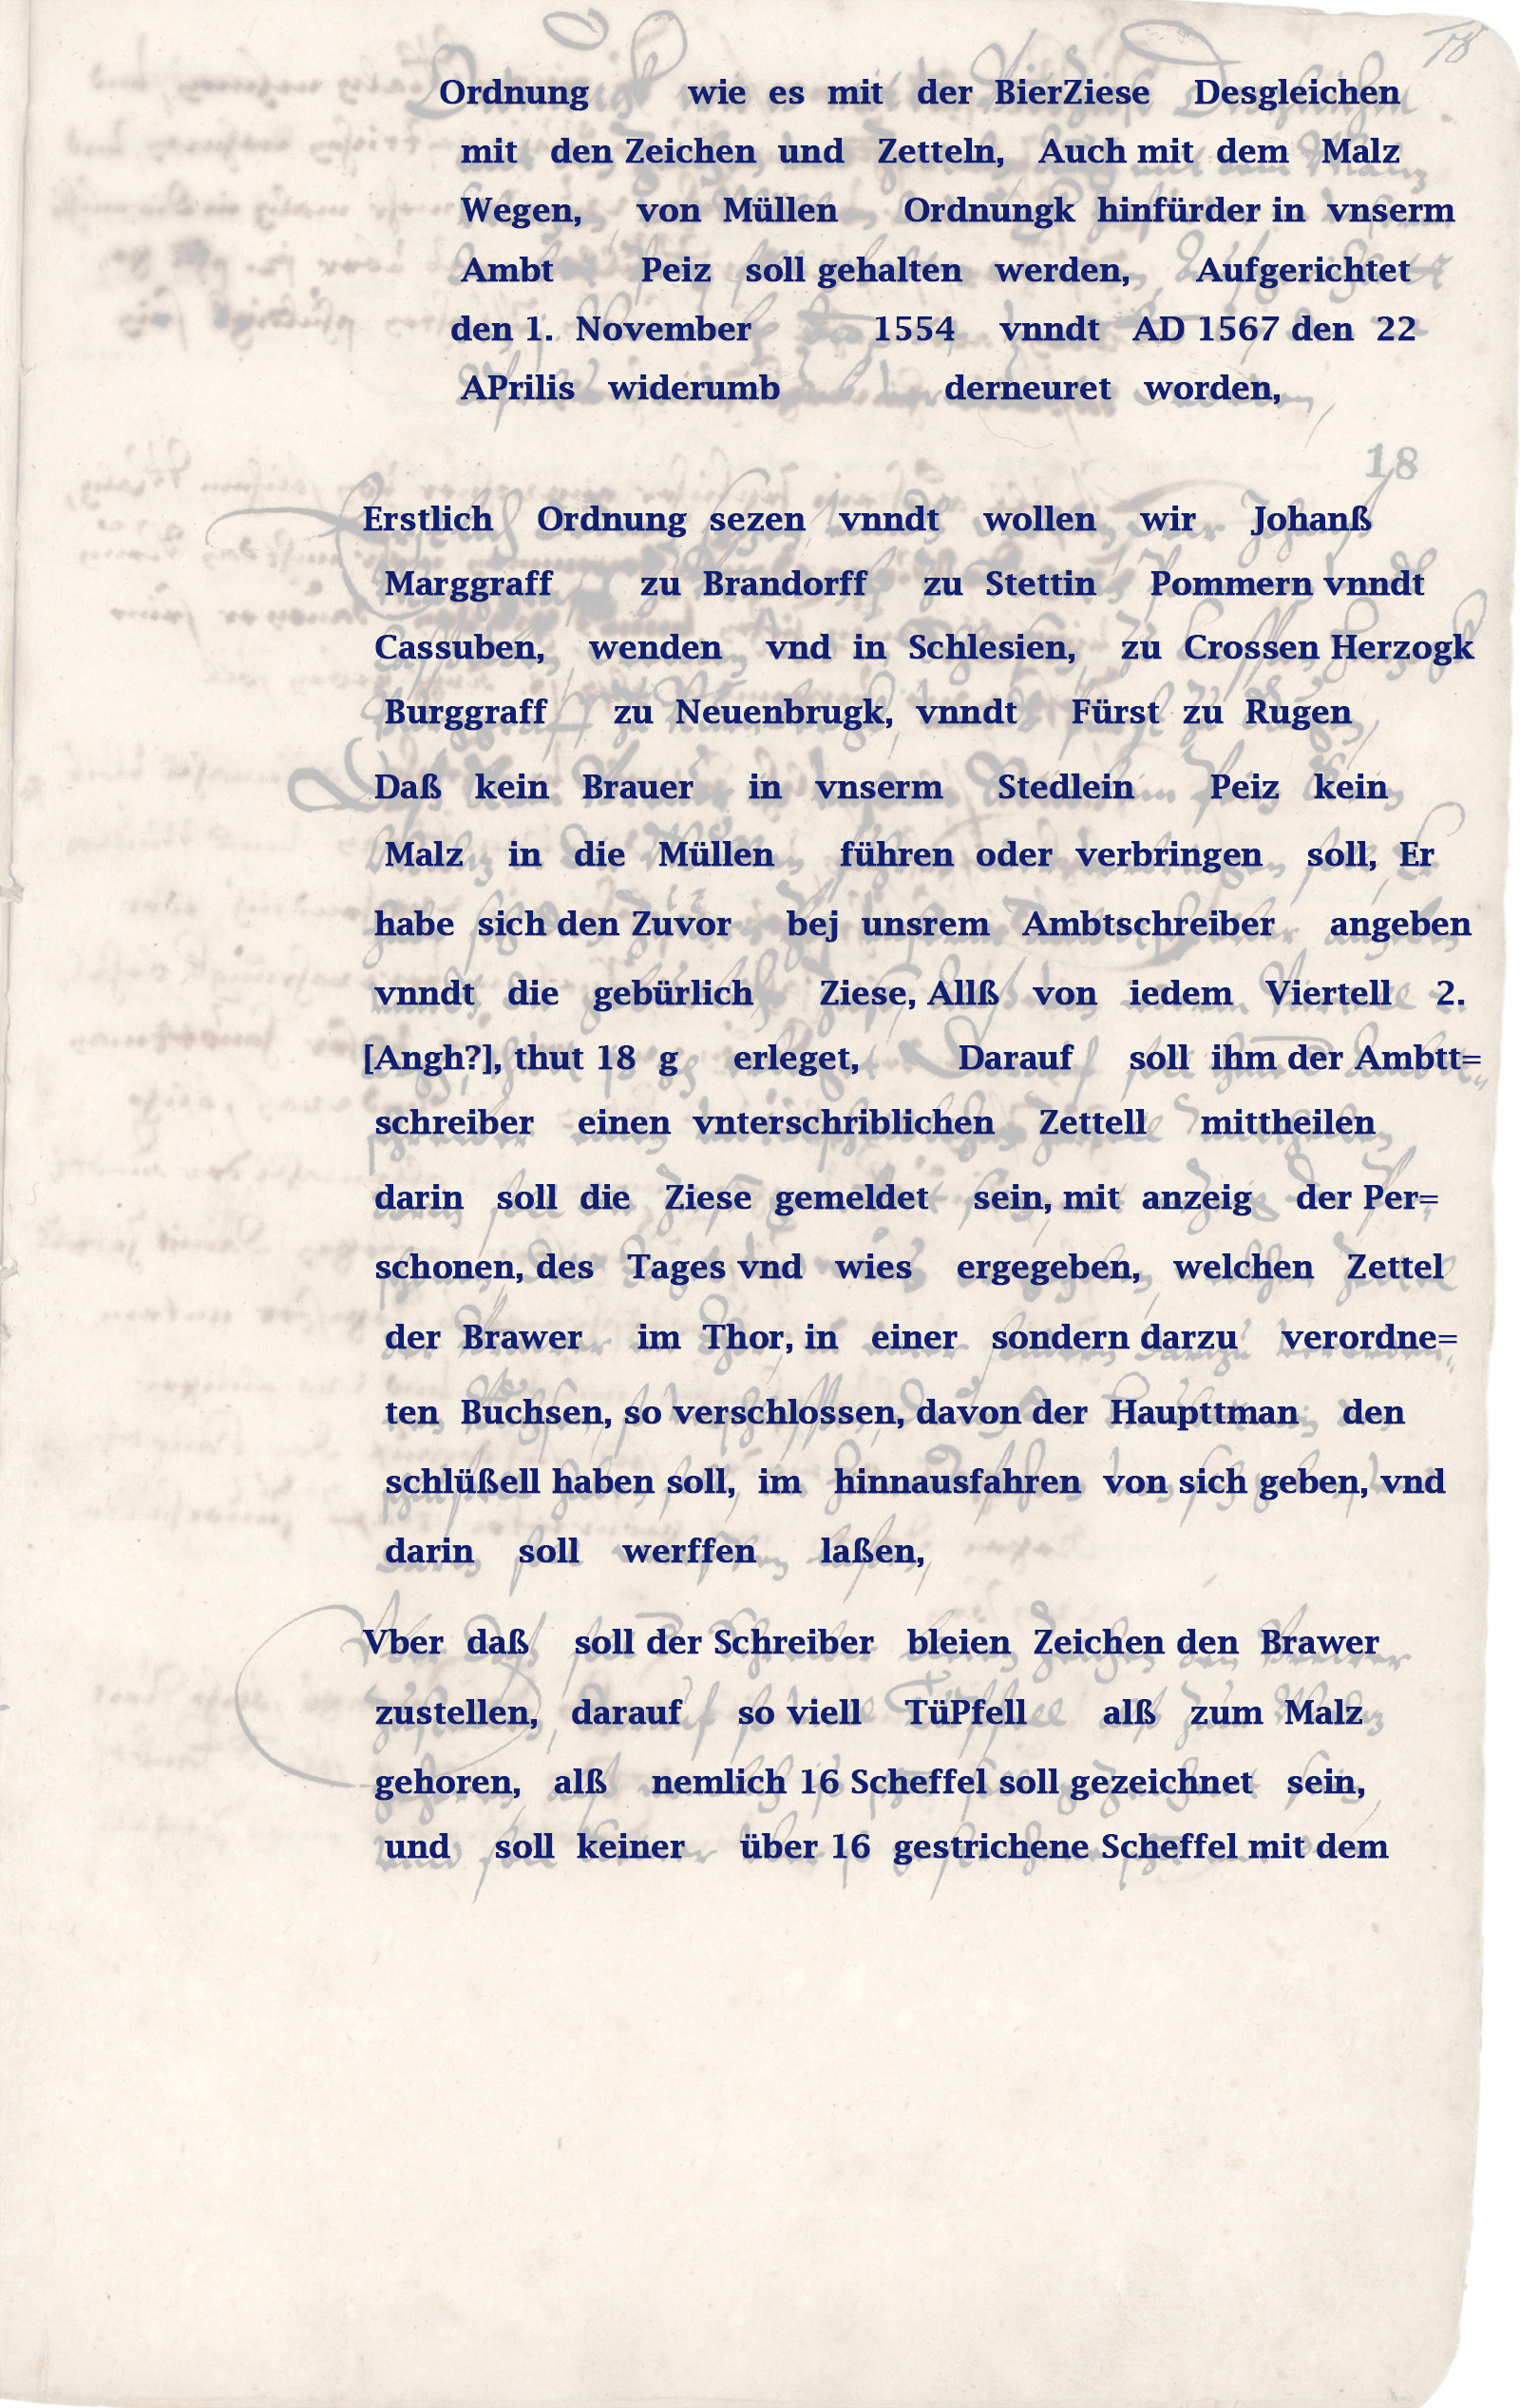 78
Ordnung wie es mit der BierZiese Desgleichen
mit den Zeichen und Zetteln, Auch mit dem Malz
Wegen, von Müllen Ordnungk hinfürder in vnserm
Ambt Peiz soll gehalten werden, Aufgerichtet
den 1. November 1554 vnndt AD 1567 den 22
APrilis widerumb derneuret worden,
18
Erstlich Ordnung sezen vnndt wollen wir Johanß
Marggraff zu Brandorff zu Stettin Pommern vnndt
Cassuben, wenden vnd in Schlesien, zu Crossen Herzogk
Burggraff zu Neuenbrugk, vnndt Fürst zu Rugen
Daß kein Brauer in vnserm Stedlein Peiz kein
Malz in die Müllen führen oder verbringen soll, Er
habe sich den Zuvor bej unsrem Ambtschreiber angeben
vnndt die gebürlich Ziese, Allß von iedem Viertell 2.
[Angh?], thut 18 g erleget, Darauf soll ihm der Ambtt=
schreiber einen vnterschriblichen Zettell mittheilen
darin soll die Ziese gemeldet sein, mit anzeig der Per=
schonen, des Tages vnd wies ergegeben, welchen Zettel
der Brawer im Thor, in einer sondern darzu verordne=
ten Buchsen, so verschlossen, davon der Haupttman den
schlüßell haben soll, im hinnausfahren von sich geben, vnd
darin soll werffen laßen,
Vber daß soll der Schreiber bleien Zeichen den Brawer
zustellen, darauf so viell TüPfell alß zum Malz
gehoren, alß nemlich 16 Scheffel soll gezeichnet sein,
und soll keiner über 16 gestrichene Scheffel mit dem